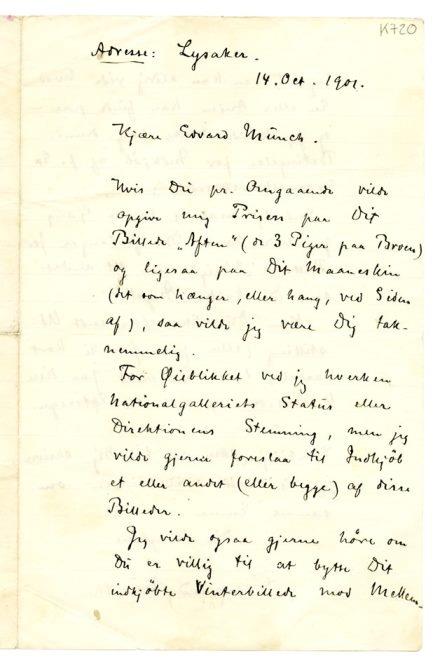 K720
Adresse: Lysaker.
14. Oct. 1901.
Kjære Edvard Münch.
Hvis Du pr. Omgaaende vilde
opgive mig Prisen paa Dit
Billede „Aften“ (de 3 Piger paa Broen)
og ligesaa paa Dit Maaneskin
(det som hænger, eller hang, ved Siden
af), saa vilde jeg være Dig tak-
nemmelig.
For Øieblikket ved jeg hverken
Nationalgalleriets Status eller
Direktionens Stemning, men jeg
vilde gjerne foreslaa til Indkjöb
et eller andet (eller begge) af disse
Billeder.
Jeg vilde ogsaa gjerne höre om
Du er villig til at bytte Dit
indkjöbte Vinterbillede mod Mellem-